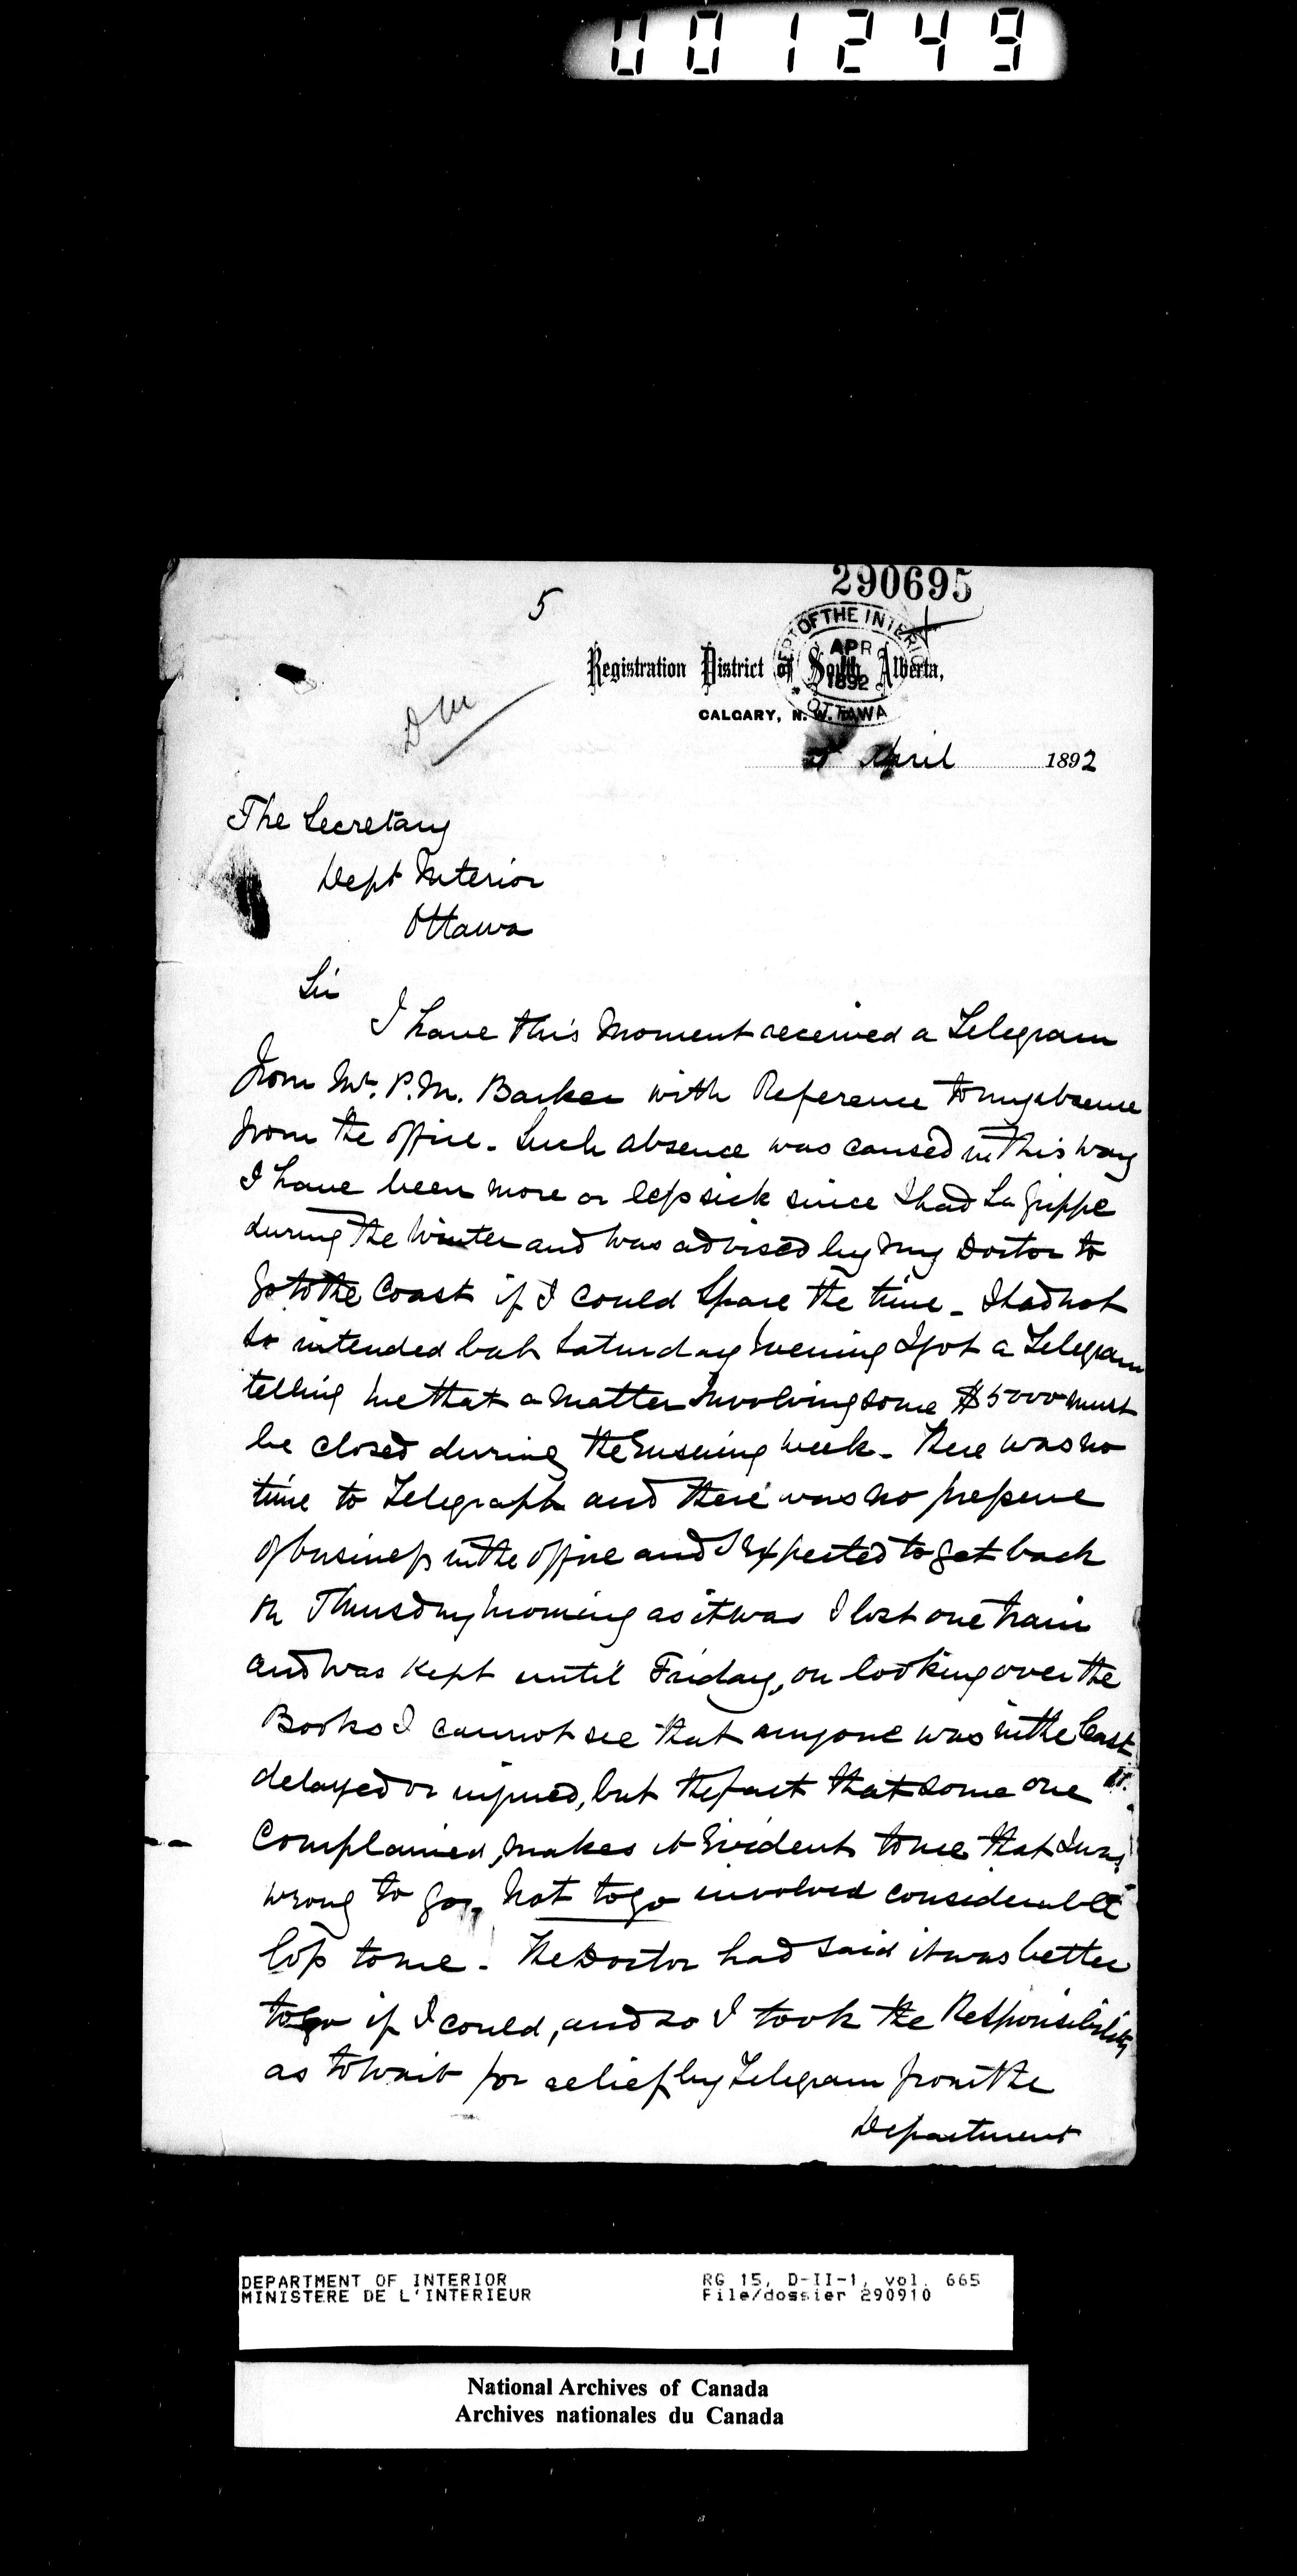 001249
290695
5
DEPT OF THE INTERIOR
APR
1892
OTTAWA
Registration District of South Alberta,
CALGARY, N. W.
DM
April 1892
The Secretary
Dept Interior
Ottawa
Sir
I have this moment received a Telegram
from Mr. P.M. Barker with Reference to my absence
from the office. Such absence was caused in this way
I have been more or less sick since I had La Grippe
during the Winter and was advised by my Doctor to
go to the Coast if I could Spare the time - I had not
so intended but Saturday Evening I got a Telegram
telling me that a matter Involving some $5000 must
be closed during the Ensuing week. There was no
time to Telegraph and there was no pressure
of business in the office and I Expected to get back
on Thursday morning as it was I lost one train
and was kept until Friday, on looking over the
Books I cannot see that anyone was in the least
delayed or injured, but the fact that some one
complained, makes it Evident to me that I was
wrong to go, Not to go involved considerable
loss to me. The Doctor had said it was better
to go if I could, and so I took the Responsibility
as to wait for relief by Telegram from the
Department
DEPARTMENT OF INTERIOR
MINISTERE DE L'INTERIEUR
RG 15, D-II-1, vol. 665
File/dossier 290910
National Archives of Canada
Archives nationales du Canada